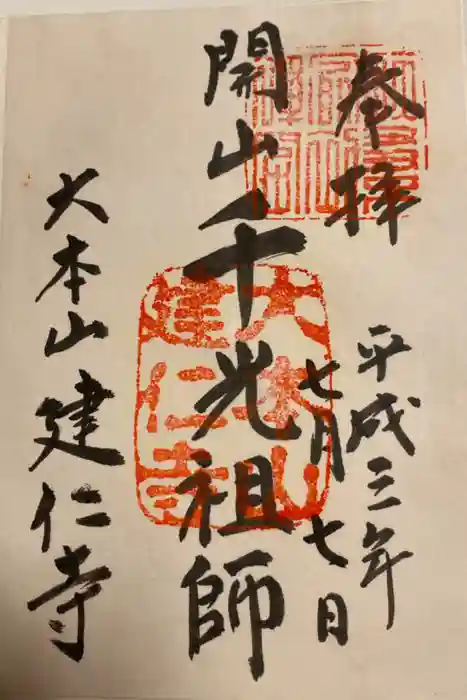 奉拝
平成三年
七月七日
開山千光祖師
大本山
建仁寺
大本山建仁寺